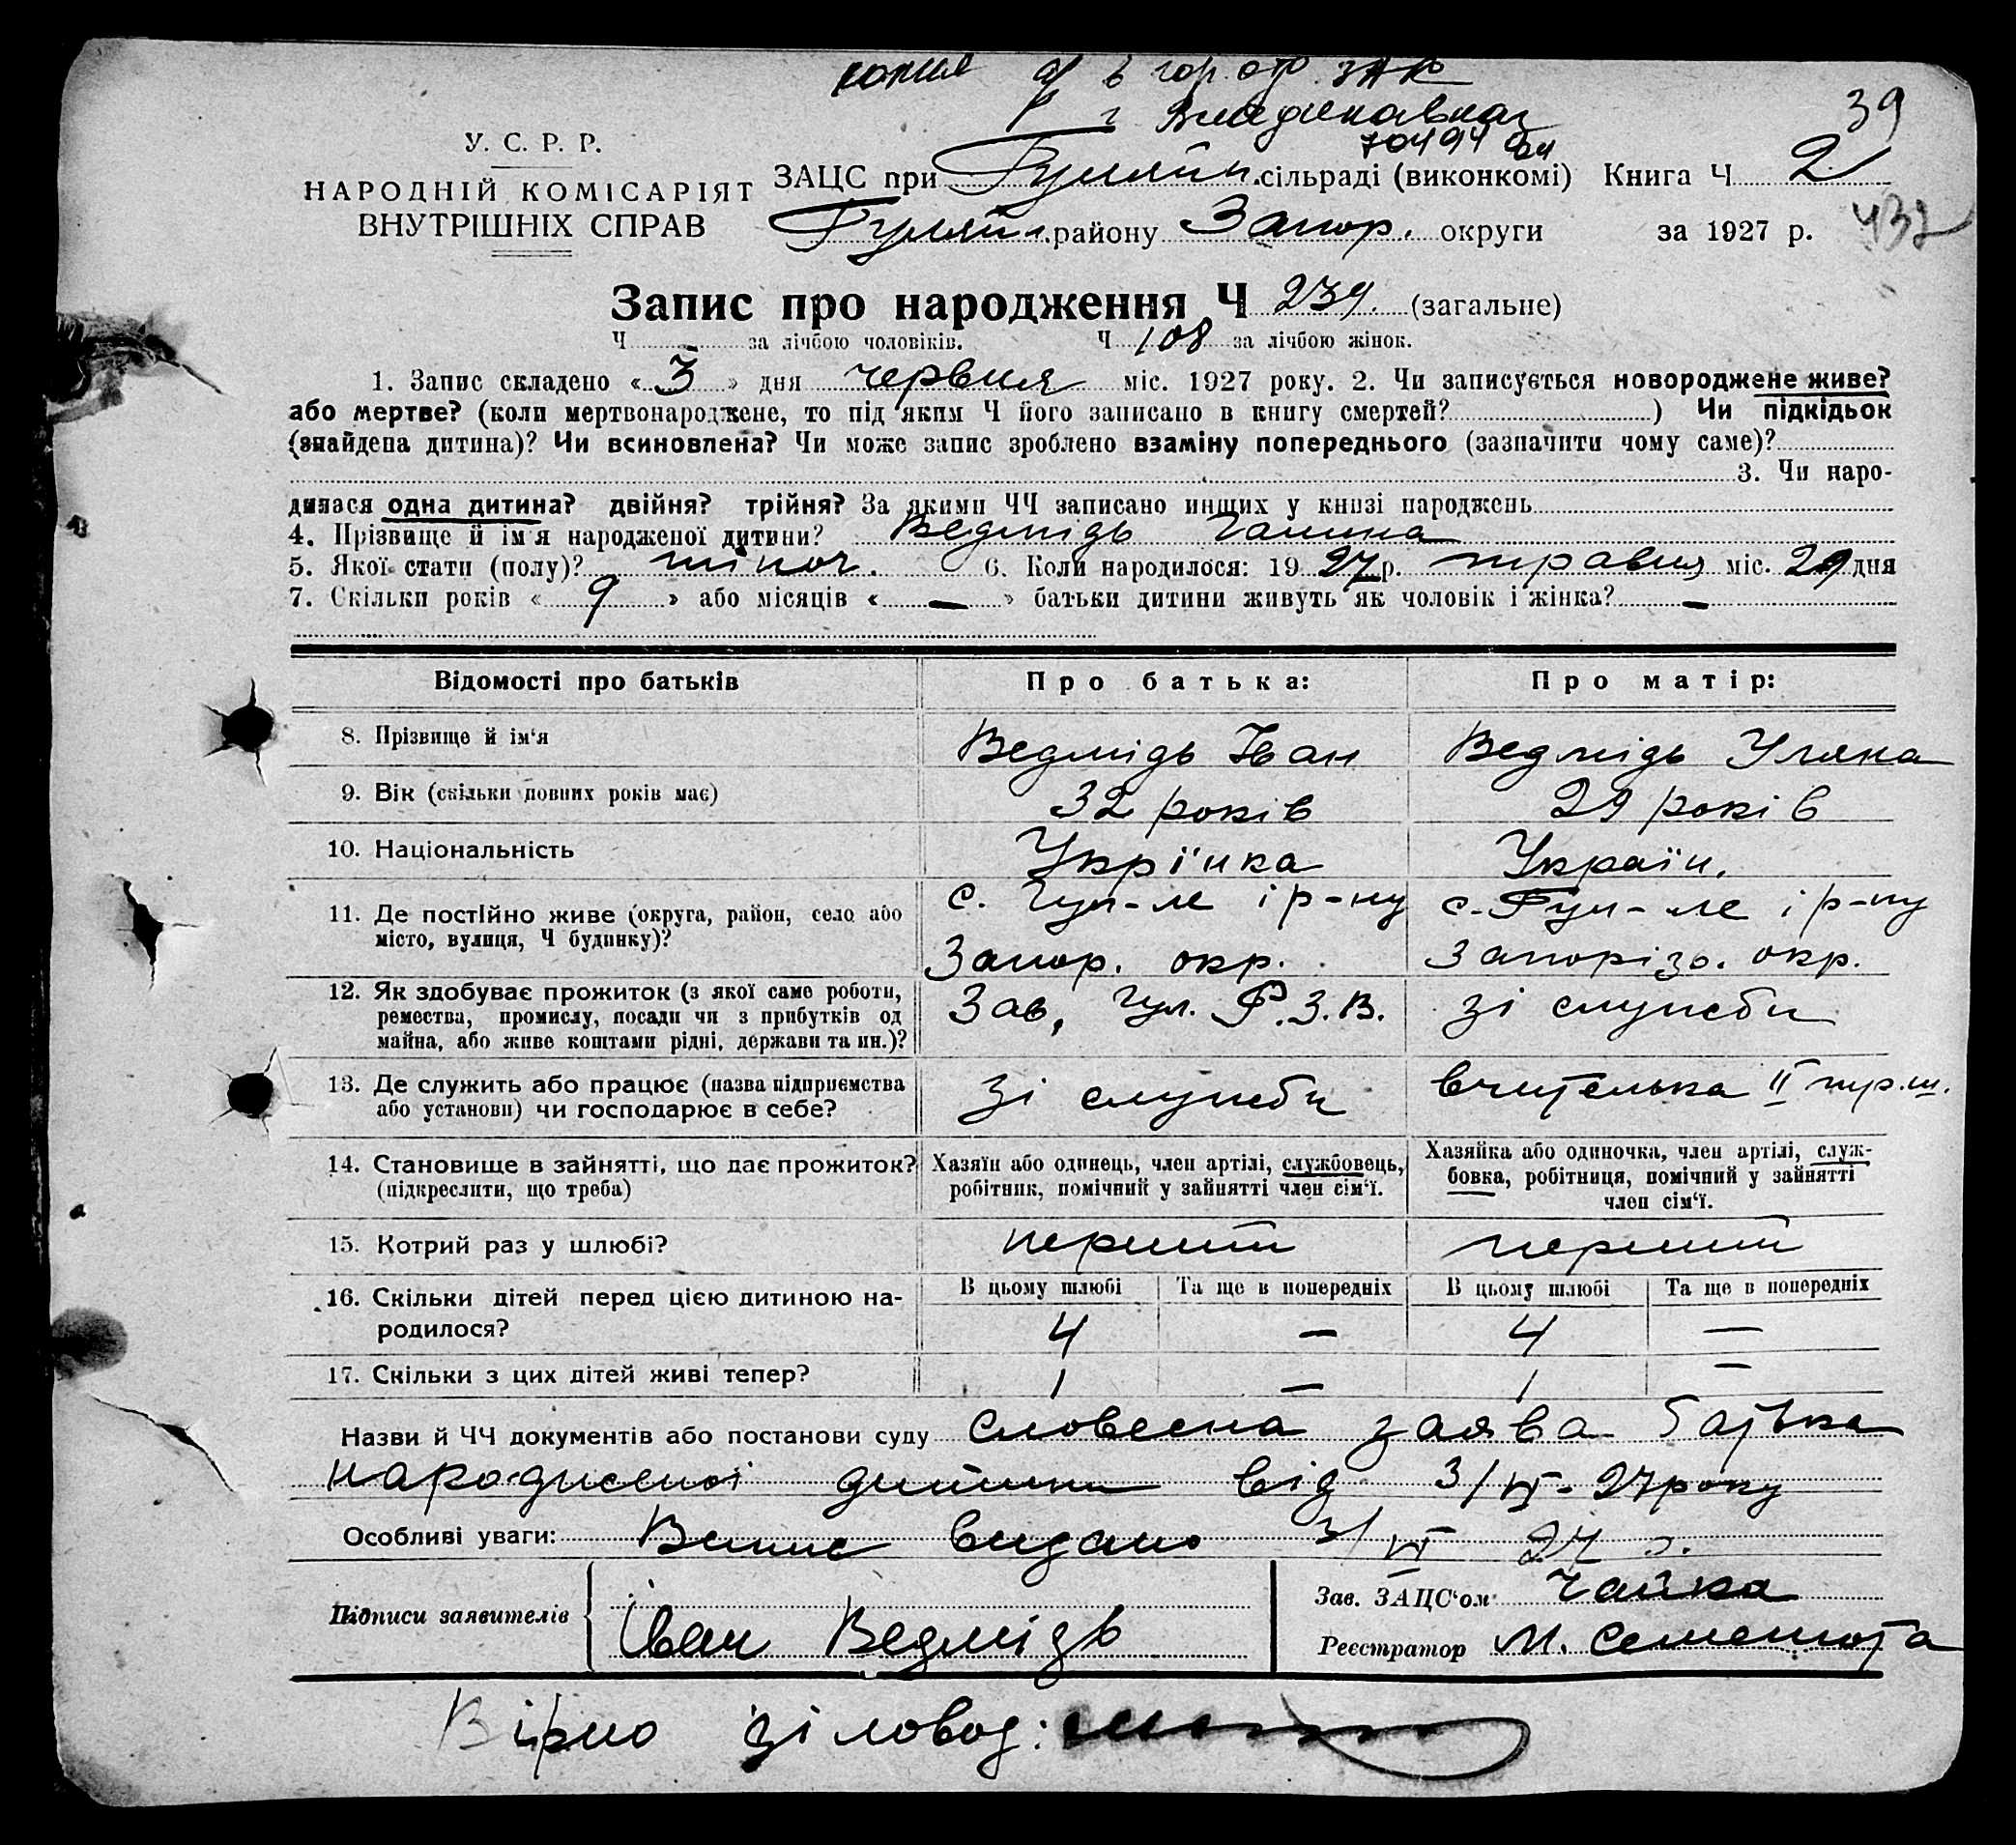 копия в гор. отд. ЗАГС
г. Владикавказ
39
У. С. Р. Р.
НАРОДНІЙ КОМІСАРІЯТ
ВНУТРІШНІХ СПРАВ
ЗАЦС при Гуляйп. сільраді (виконкомі) Книга Ч 2
Гуляйп. району Запор. округи за 1927 р. 432
Запис про народження Ч 239. (загальне)
Ч за лічбою чоловіків. Ч 108 за лічбою жінок.
1. Запис складено « 3 » дня червня міс. 1927 року. 2. Чи записується новороджене живе?
або мертве? (коли мертвонароджене, то під яким Ч його записано в книгу смертей? ) Чи підкідьок
(знайдена дитина)? Чи всиновлена? Чи може запис зроблено взаміну попереднього (зазначити чому саме)?
3. Чи наро-
дилася одна дитина? двійня? трійня? За якими ЧЧ записано инших у книзі народжень
4. Прізвище й ім'я народженої дитини? Ведмідь Галина
5. Якої стати (полу)? жіноч. 6. Коли народилося: 19 27 р. травня міс. 29 дня
7. Скільки років « 9 » або місяців « — » батьки дитини живуть як чоловік і жінка? —
Відомості про батьків Про батька: Про матір:
8. Прізвище й ім'я Ведмідь Іван Ведмідь Уляна
9. Вік (скільки повних років має) 32 років 29 років
10. Національність Укрінка Україн.
11. Де постійно живе (округа, район, село або с. Гул-ле і р-ну с. Гул-ле і р-ну
місто, вулиця, Ч будинку)? Запор. окр. Запорізь. окр.
12. Як здобуває прожиток (з якої саме роботи, Зав. Гул. Р.З.В. зі служби
ремества, промислу, посади чи з прибутків од
майна, або живе коштами рідні, держави та ин.)?
13. Де служить або працює (назва підприємства зі служби вчителька II тр. ш.
або установи) чи господарює в себе?
14. Становище в зайнятті, що дає прожиток? Хазяїн або одинець, член артілі, службовець, Хазяйка або одиночка, член артілі, служ-
(підкреслити, що треба) робітник, помічний у зайнятті член сім'ї. бовка, робітниця, помічний у зайнятті
член сім'ї.
15. Котрий раз у шлюбі? перший перший
16. Скільки дітей перед цією дитиною на- В цьому шлюбі Та ще в попередніх В цьому шлюбі Та ще в попередніх
родилося? 4 — 4 —
17. Скільки з цих дітей живі тепер? 1 — 1 —
Назви й ЧЧ документів або постанови суду словесна заява батька
народженої дитини від 3/VI - 27 року
Особливі уваги: Випис видано 3/VI 27 р.
Підписи заявителів Іван Ведмідь
Зав. ЗАЦС'ом Чайка
Реєстратор М. Семенюта
Вірно діловод: